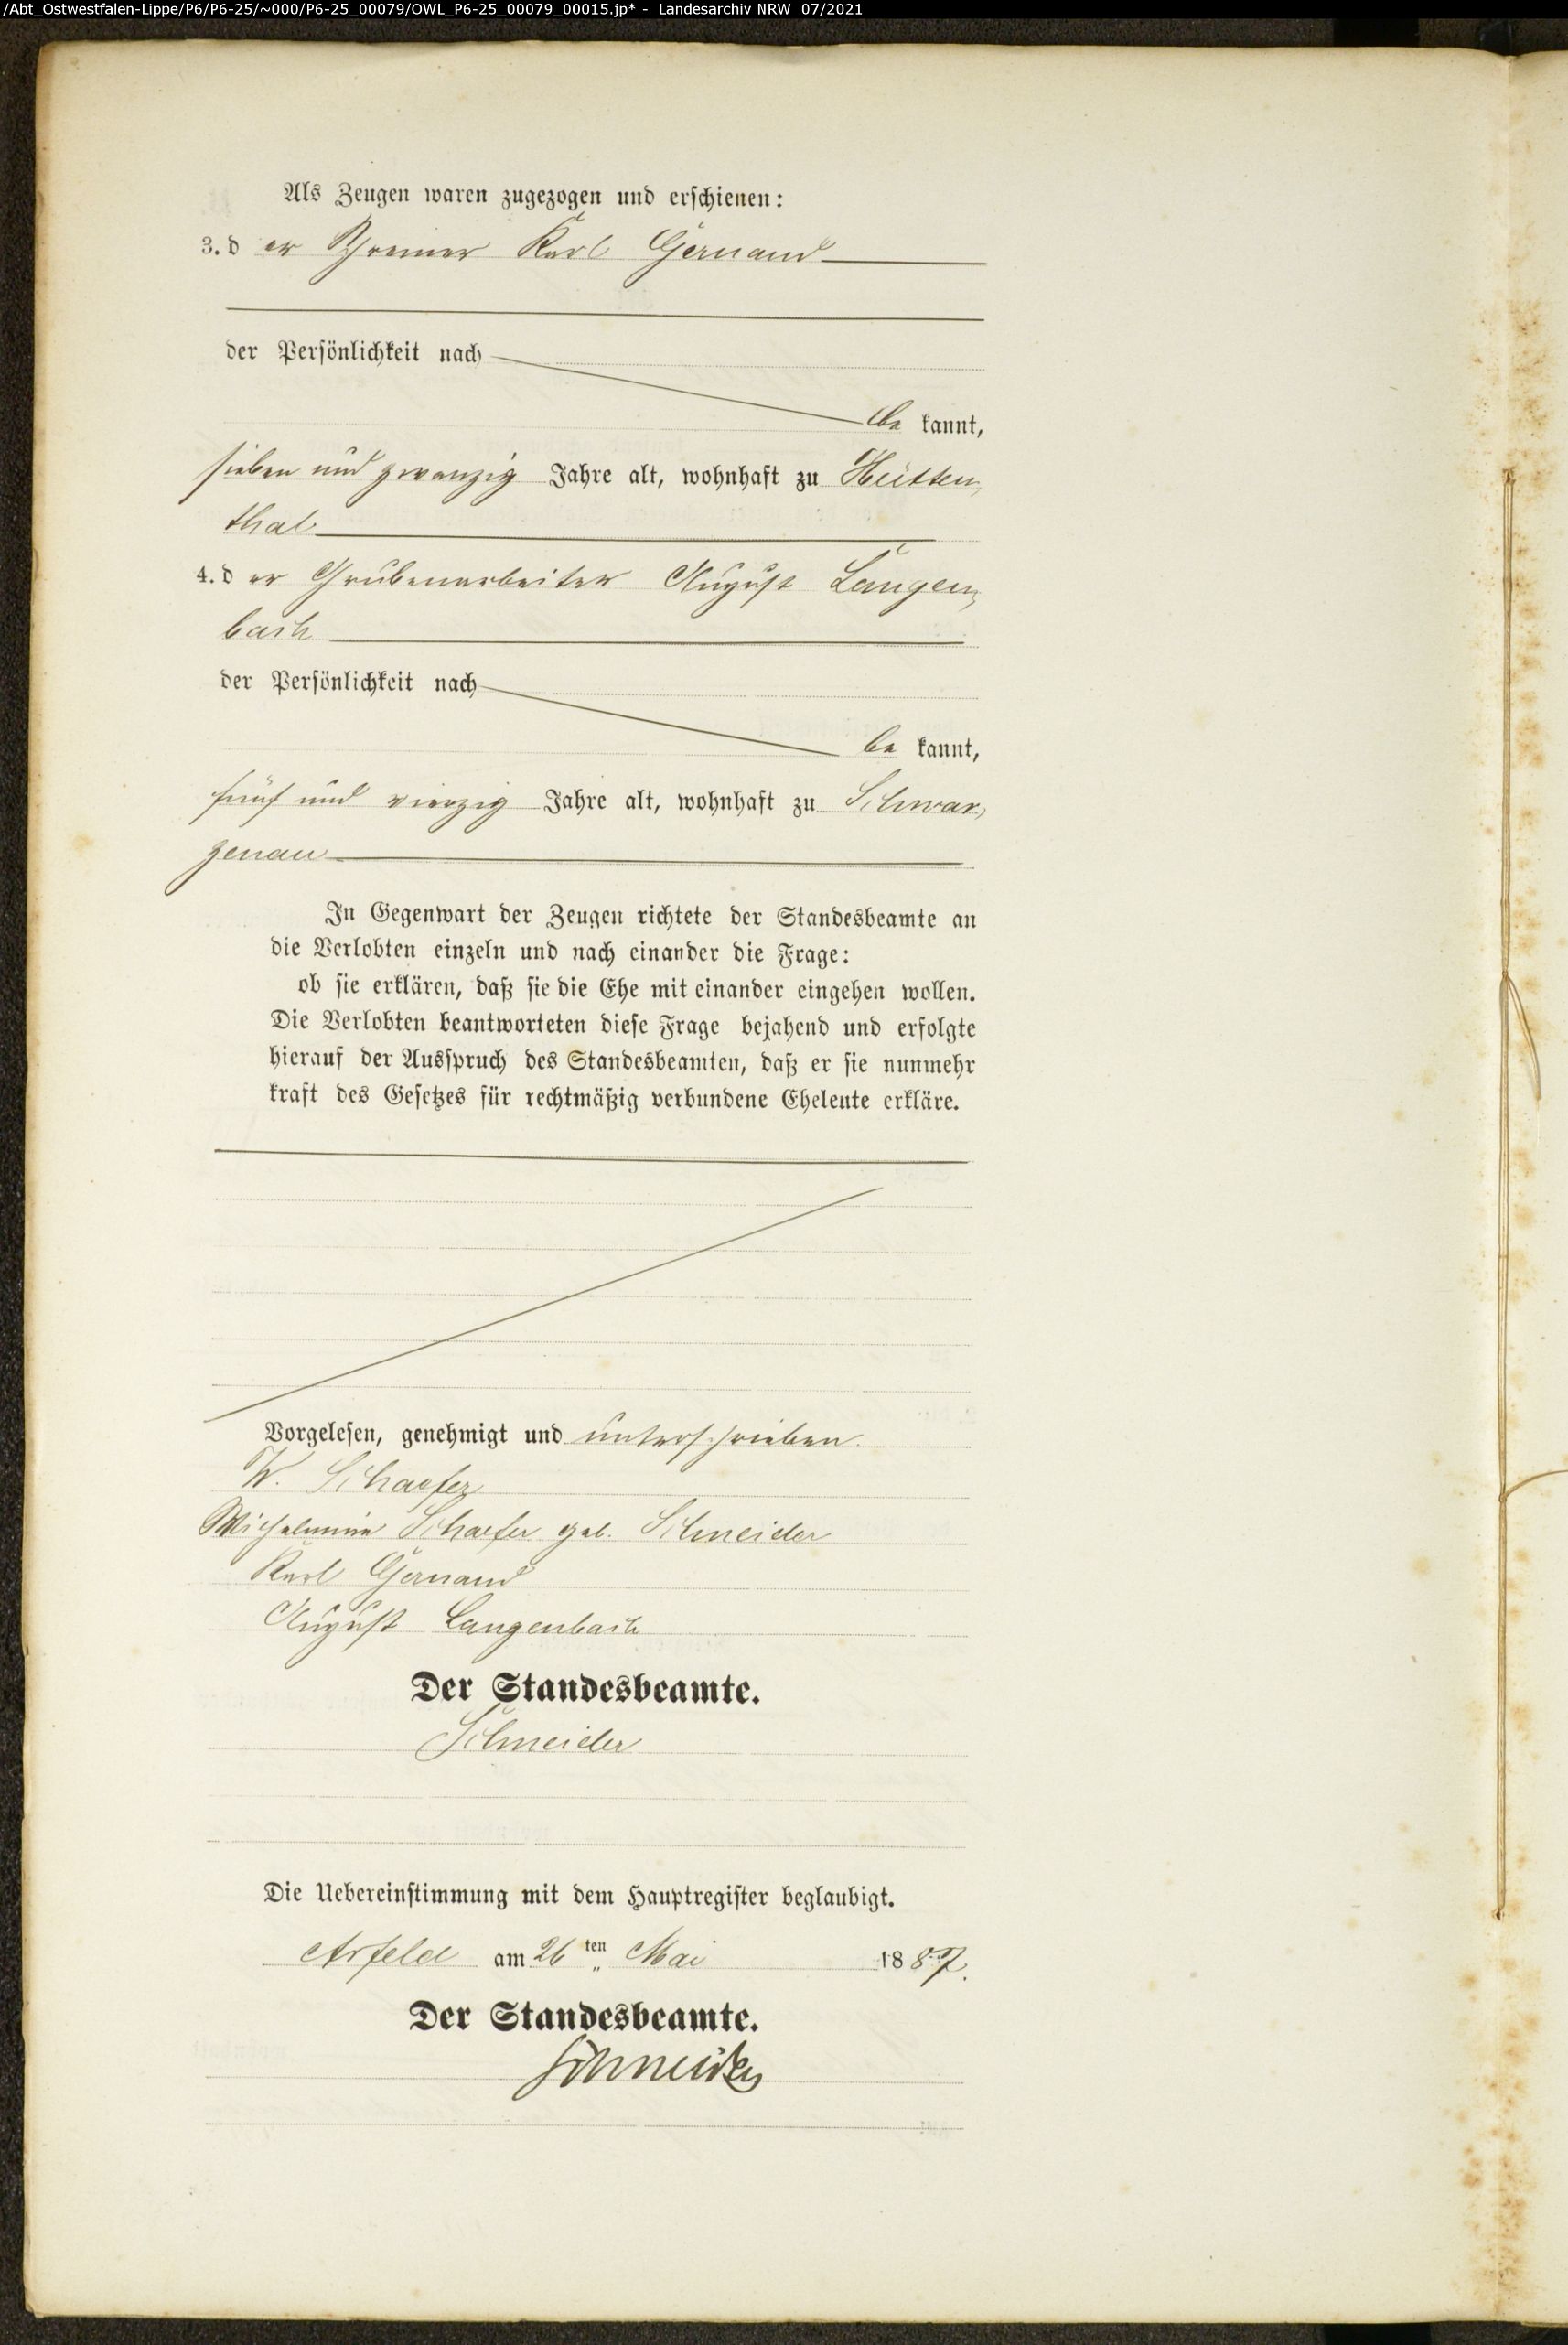 /Abt_Ostwestfalen-Lippe/P6/P6-25/~000/P6-25_00079/OWL_P6-25_00079_00015.jp* - Landesarchiv NRW 07/2021
Als Zeugen waren zugezogen und erschienen:
3. der Schreiner Karl Gernand
der Persönlichkeit nach
be kannt,
sieben und zwanzig Jahre alt, wohnhaft zu Hütten-
thal
4. der Grubenarbeiter August Langen-
bach
der Persönlichkeit nach
be kannt,
fünf und vierzig Jahre alt, wohnhaft zu Schwar-
zenau
In Gegenwart der Zeugen richtete der Standesbeamte an
die Verlobten einzeln und nach einander die Frage:
ob sie erklären, daß sie die Ehe mit einander eingehen wollen.
Die Verlobten beantworteten diese Frage bejahend und erfolgte
hierauf der Ausspruch des Standesbeamten, daß er sie nunmehr
kraft des Gesetzes für rechtmäßig verbundene Eheleute erkläre.
Vorgelesen, genehmigt und unterschrieben.
W. Schaefer
Wilhelmine Schaefer geb. Schneider
Karl Gernand
August Langenbach
Der Standesbeamte.
Schneider
Die Uebereinstimmung mit dem Hauptregister beglaubigt.
Arfeld am 26ten Mai 1887.
Der Standesbeamte.
Schneider